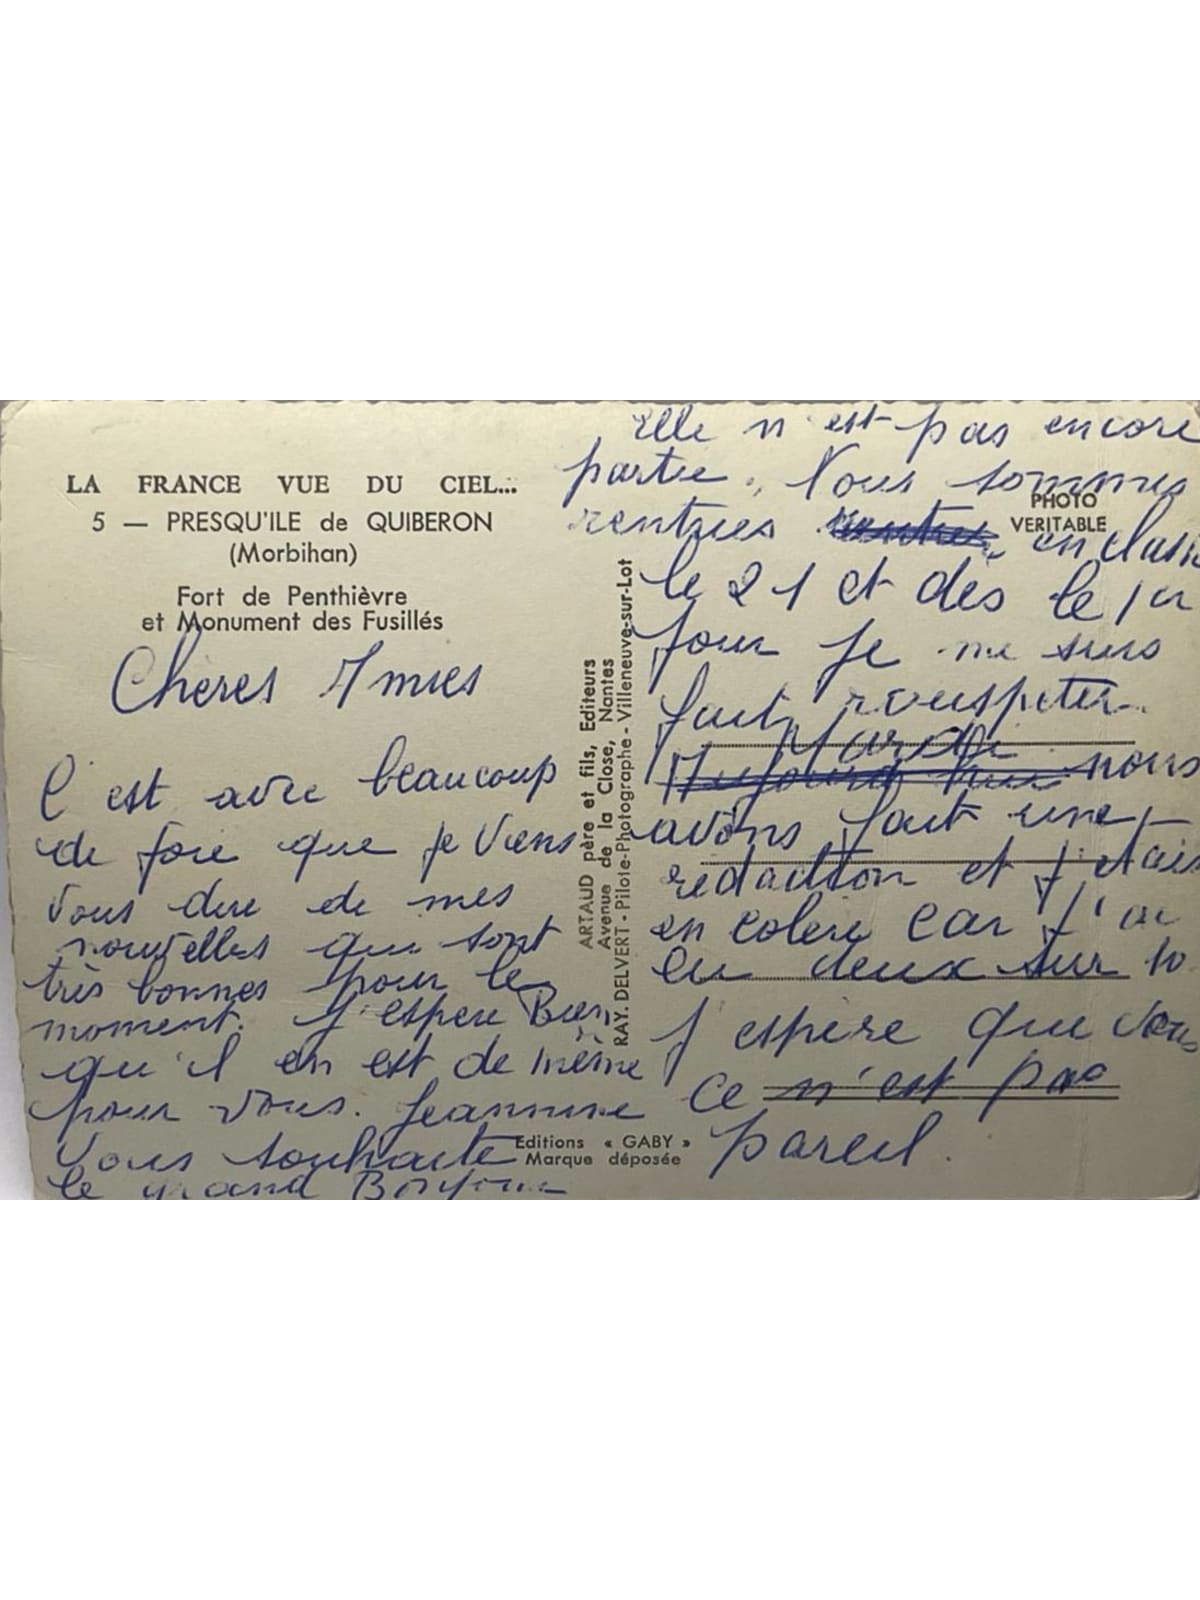 LA FRANCE VUE DU CIEL...
5 — PRESQU'ILE de QUIBERON
(Morbihan)
Fort de Penthièvre
et Monument des Fusillés
Chères Amies
C'est avec beaucoup
de joie que je viens
vous dire de mes
nouvelles qui sont
très bonnes pour le
moment. J'espere Bien
qu'il en est de même
pour vous. Jeannine
vous souhaite
le grand Bonjour
ARTAUD père et fils, Editeurs
Avenue de la Close, Nantes
RAY. DELVERT - Pilote-Photographe - Villeneuve-sur-Lot
Editions « GABY »
Marque déposée
PHOTO
VERITABLE
Elle n'est pas encore
partie. Nous sommes
rentrées en classe
le 21 et dès le 1er
jour je me suis
fait rouspeter.
Mardi
Aujourd'hui nous
avons fait une
rédaction et j'étais
en colère car j'ai
eu deux sur 10
J'espère que vous
ce n'est pas
pareil.